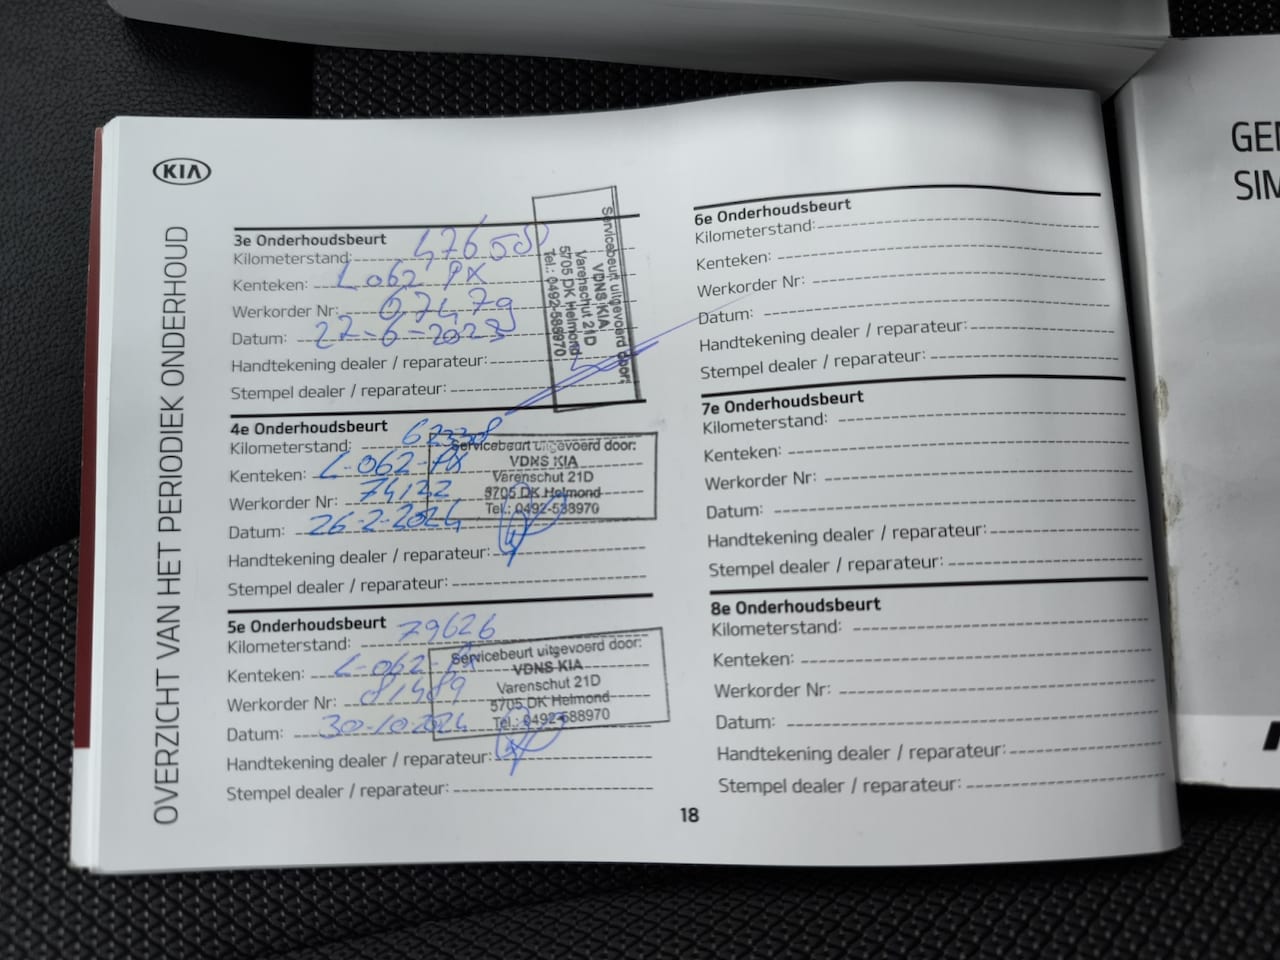 KIA
OVERZICHT VAN HET PERIODIEK ONDERHOUD
3e Onderhoudsbeurt
Kilometerstand: 47658
Kenteken: L062 PX
Werkorder Nr: 67479
Datum: 22-6-2023
Handtekening dealer / reparateur:
Stempel dealer / reparateur:
Servicebeurt uitgevoerd door:
VDNS KIA
Varenschut 21D
5705 DK Helmond
Tel.: 0492-588970
4e Onderhoudsbeurt
Kilometerstand:
Kenteken: L-062-PX
Werkorder Nr: 74122
Datum: 26-2-2024
Handtekening dealer / reparateur:
Stempel dealer / reparateur:
Servicebeurt uitgevoerd door:
VDNS KIA
Varenschut 21D
5705 DK Helmond
Tel.: 0492-588970
5e Onderhoudsbeurt
Kilometerstand: 79626
Kenteken: L-062-PX
Werkorder Nr: 81489
Datum: 30-10-2024
Handtekening dealer / reparateur:
Stempel dealer / reparateur:
Servicebeurt uitgevoerd door:
VDNS KIA
Varenschut 21D
5705 DK Helmond
Tel.: 0492-588970
6e Onderhoudsbeurt
Kilometerstand:
Kenteken:
Werkorder Nr:
Datum:
Handtekening dealer / reparateur:
Stempel dealer / reparateur:
7e Onderhoudsbeurt
Kilometerstand:
Kenteken:
Werkorder Nr:
Datum:
Handtekening dealer / reparateur:
Stempel dealer / reparateur:
8e Onderhoudsbeurt
Kilometerstand:
Kenteken:
Werkorder Nr:
Datum:
Handtekening dealer / reparateur:
Stempel dealer / reparateur:
18
GE
SIM